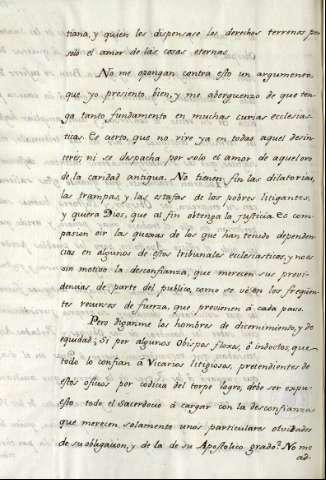 tiana, y quien les dispensase los derechos terrenos por
solo el amor de las cosas eternas.
No me opongan contra esto un argumento,
que yo presiento bien, y me aberguenzo de que ten-
ga tanto fundamento en muchas curias ecclesias-
ticas. Es cierto, que no vive ya en todas aquel desin-
terés, ni se despacha por solo el amor de aquel oro
de la caridad antigua. No tienen fin las dilatorias,
las trampas, y las estafas de los pobres litigantes,
y quiera Dios, que al fin obtenga la justicia. Es com-
pasion oir las quexas de los que han tenido dependen-
cias en algunos de estos tribunales ecclesiasticos, y no es
sin motivo la desconfianza, que merecen sus provi-
dencias de parte del publico, como se vé en los freqüen-
tes recursos de fuerza, que previenen á cada paso.
Pero diganme los hombres de discernimiento, y de
equidad; Si por algunos Obispos floxos, ó indoctos, que
todo lo confian á Vicarios litigiosos, pretendientes de
estos oficios por codicia del torpe logro, debe ser expu-
esto todo el Sacerdocio á cargar con la desconfianza
que merecen solamente unos particulares olvidados
de su obligacion, y de la de su Apostolico grado? No me
ad-